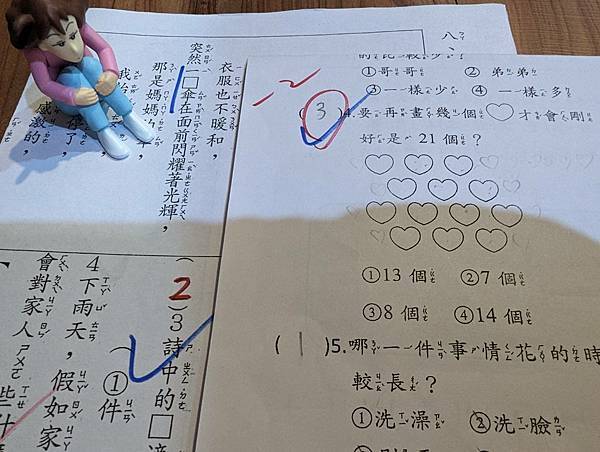 八、
衣服也不暖和，
突然
□傘在面前閃耀著光輝，
那是媽媽
感激的，
(2)3詩中的□
①件
4下雨天，假如家
會對家人
些什
①哥哥 ②弟弟
③一樣少 ④一樣多
-2
(3)4.要再畫幾個♡才會剛
好是21個？
①13個 ②7個
③8個 ④14個
(1)5.哪一件事情花的時
較長？
①洗澡 ②洗臉